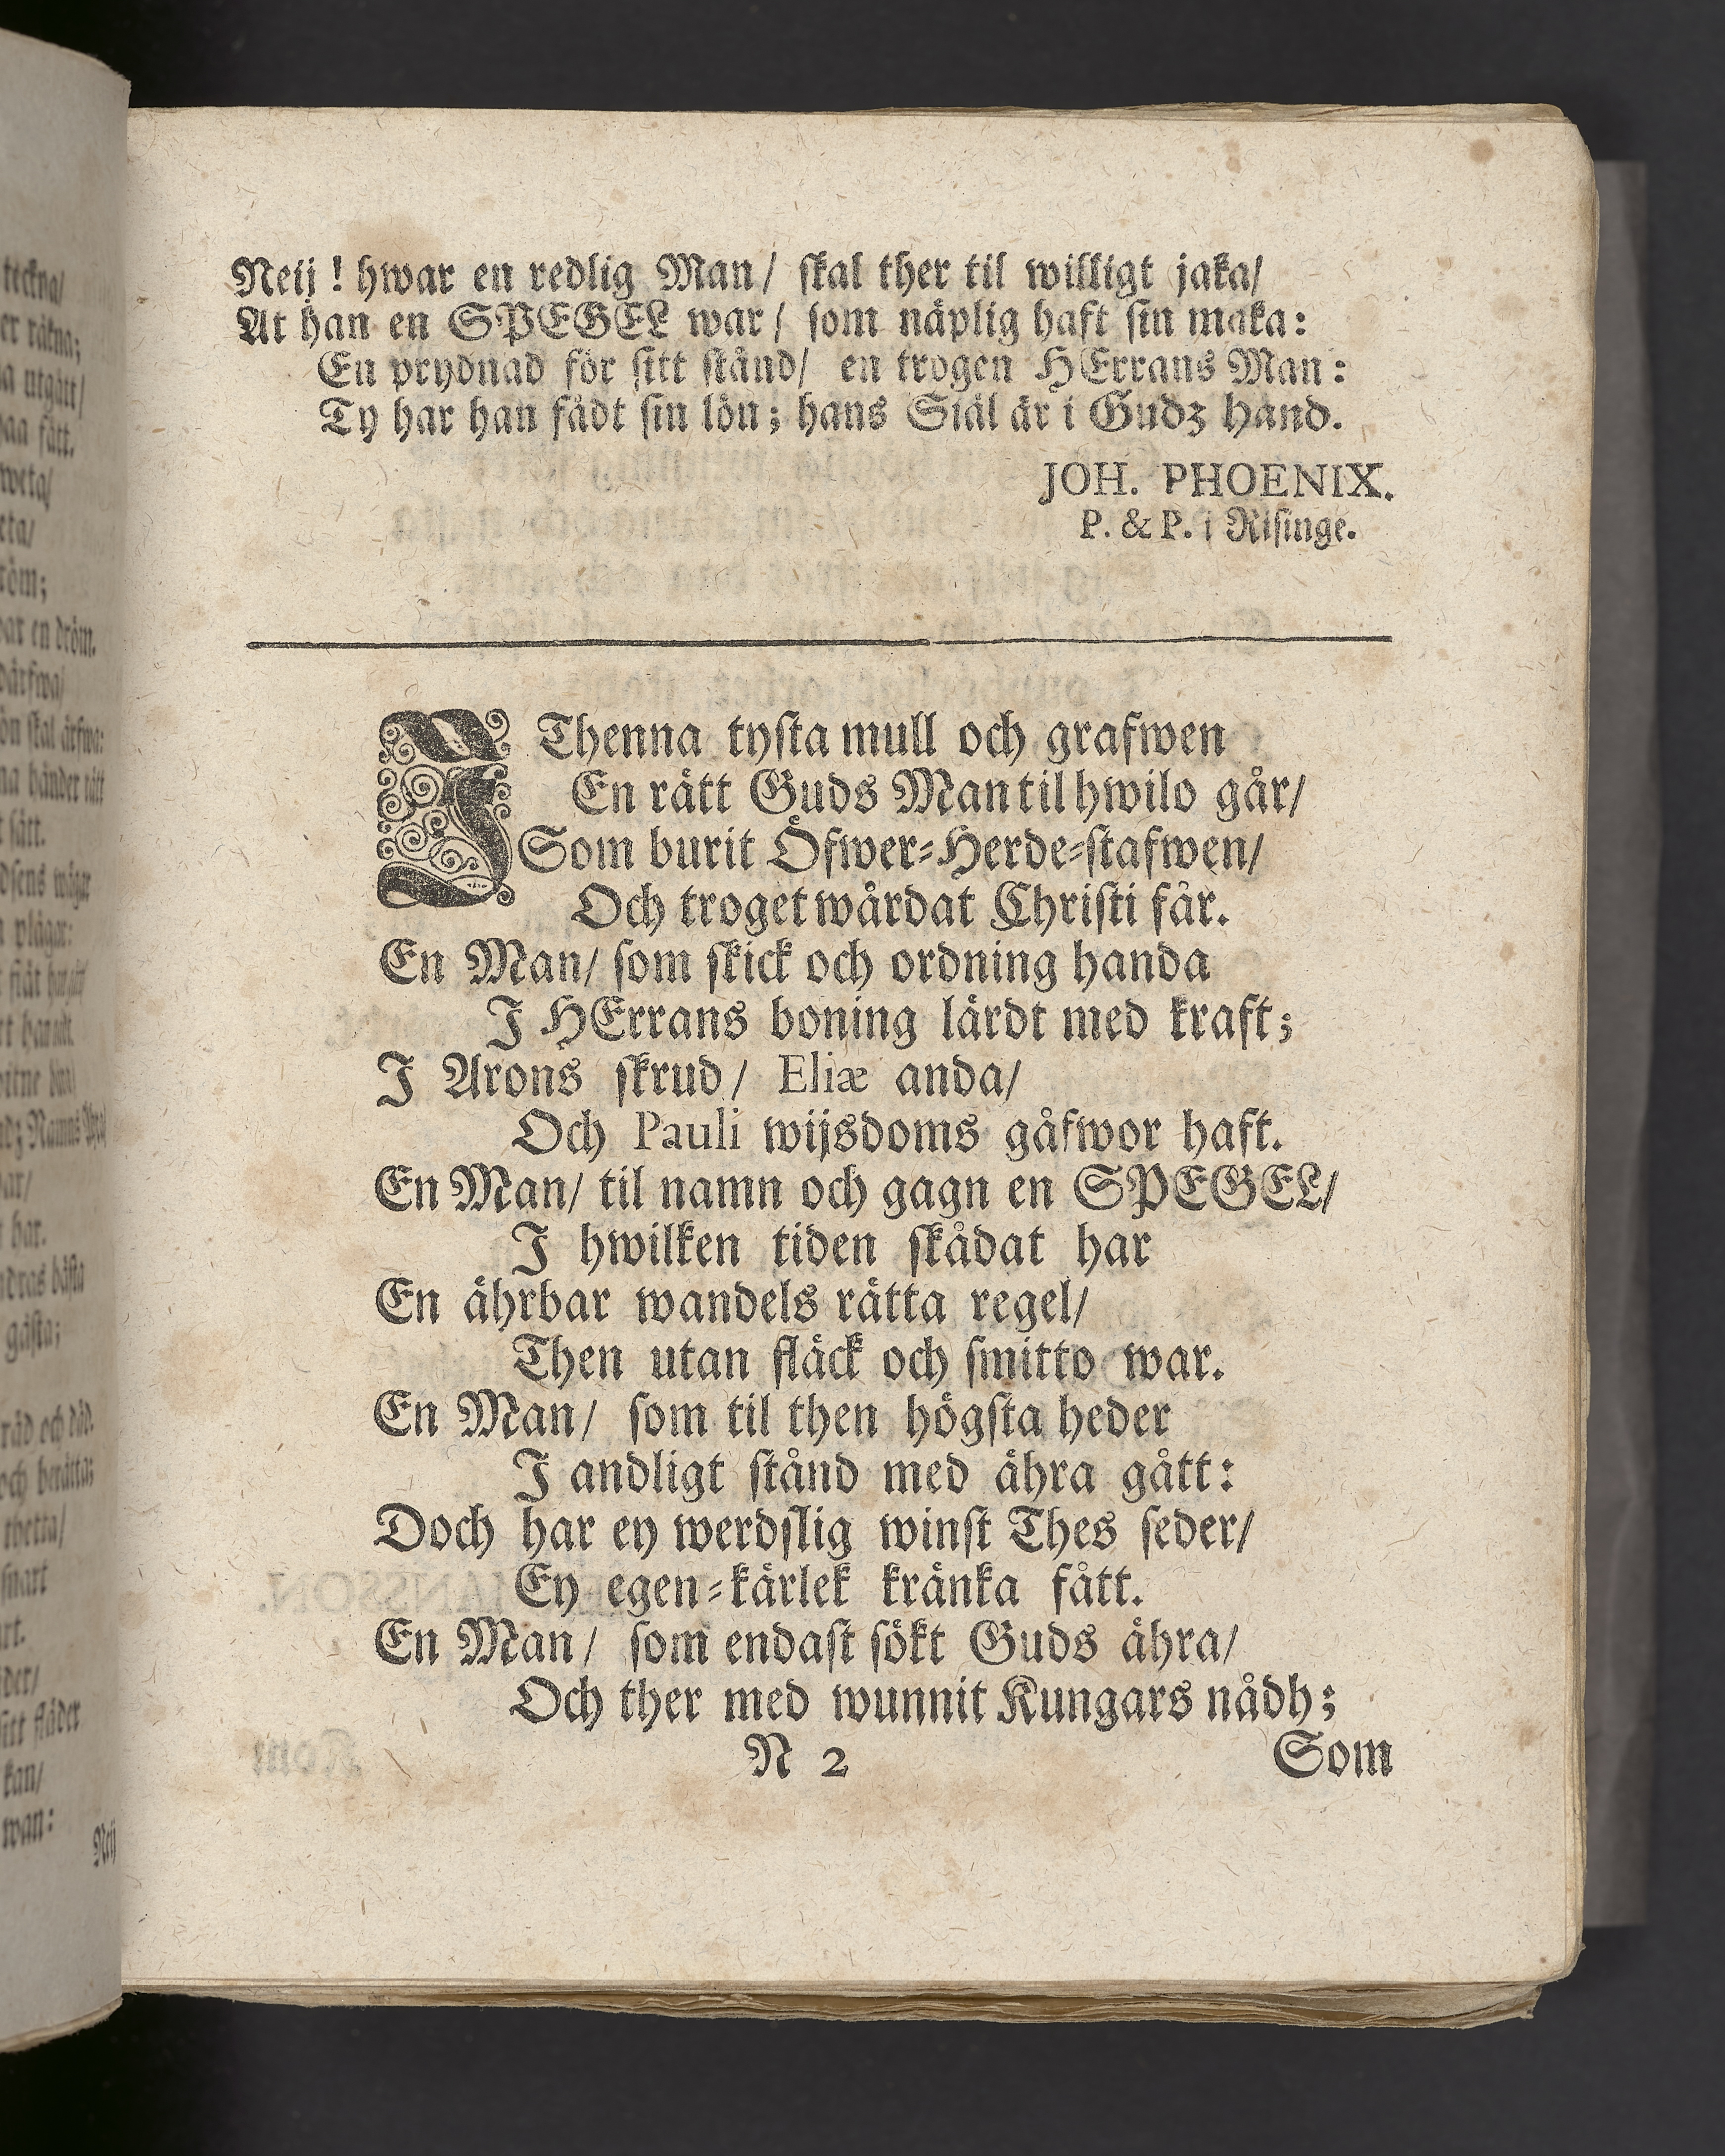 teckna/
er räkna;
a utgått/
fått.
weta/
röm;
ar en dröm.
ön skal ärfwa:
na händer
sätt.
plågar:
har.
bästa
gästa;
råd och
och berätta;
thetta/
snart
fläder
kan/
wan:
Neij
Neij! hwar en redlig Man/ ſkal ther til willigt jaka/
At han en SPEGEL war/ ſom näplig haft ſin maka:
En prydnad för ſitt ſtånd/ en trogen HErrans Man:
Ty har han fådt ſin lön; hans Siäl är i Gudz hand.
JOH. PHOENIX.
P. & P. i Riſinge.
I Thenna tyſta mull och grafwen
En rätt Guds Man til hwilo går/
Som burit Öfwer-Herde-ſtafwen/
Och troget wårdat Chriſti får.
En Man/ ſom ſkick och ordning handa
I HErrans boning lärdt med kraft;
I Arons ſkrud/ Eliæ anda/
Och Pauli wijsdoms gåfwor haft.
En Man/ til namn och gagn en SPEGEL/
I hwilken tiden ſkådat har
En ährbar wandels rätta regel/
Then utan fläck och ſmitto war.
En Man/ ſom til then högſta heder
I andligt ſtånd med ähra gått:
Doch har ey werdſlig winſt Thes ſeder/
Ey egen-kärlek kränka fått.
En Man/ ſom endaſt ſökt Guds ähra/
Och ther med wunnit Kungars nådh;
N 2 Som